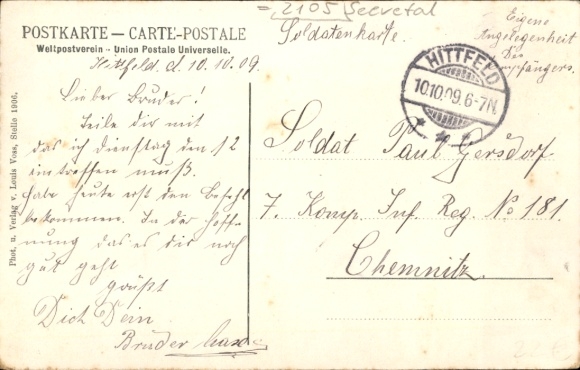 = 2105 Seevetal
POSTKARTE — CARTE-POSTALE
Weltpostverein - Union Postale Universelle.
Soldatenkarte.
Eigene
Angelegenheit
Des
Empfängers.
Hittfeld. d. 10.10.09.
HITTFELD
10.10.09.6-7N.
Lieber Bruder!
Teile dir mit
das ich Dienstag den 12
eintreffen muß.
habe heute erst den Befehl
bekommen. In der Hoff-
nung das es dir noch
gut geht
grüßt
Dich Dein
Bruder
Soldat Paul Gersdorf
7. Komp. Inf. Reg. No 181.
Chemnitz.
Phot. u. Verlag v. Louis Voss, Stelle 1906.